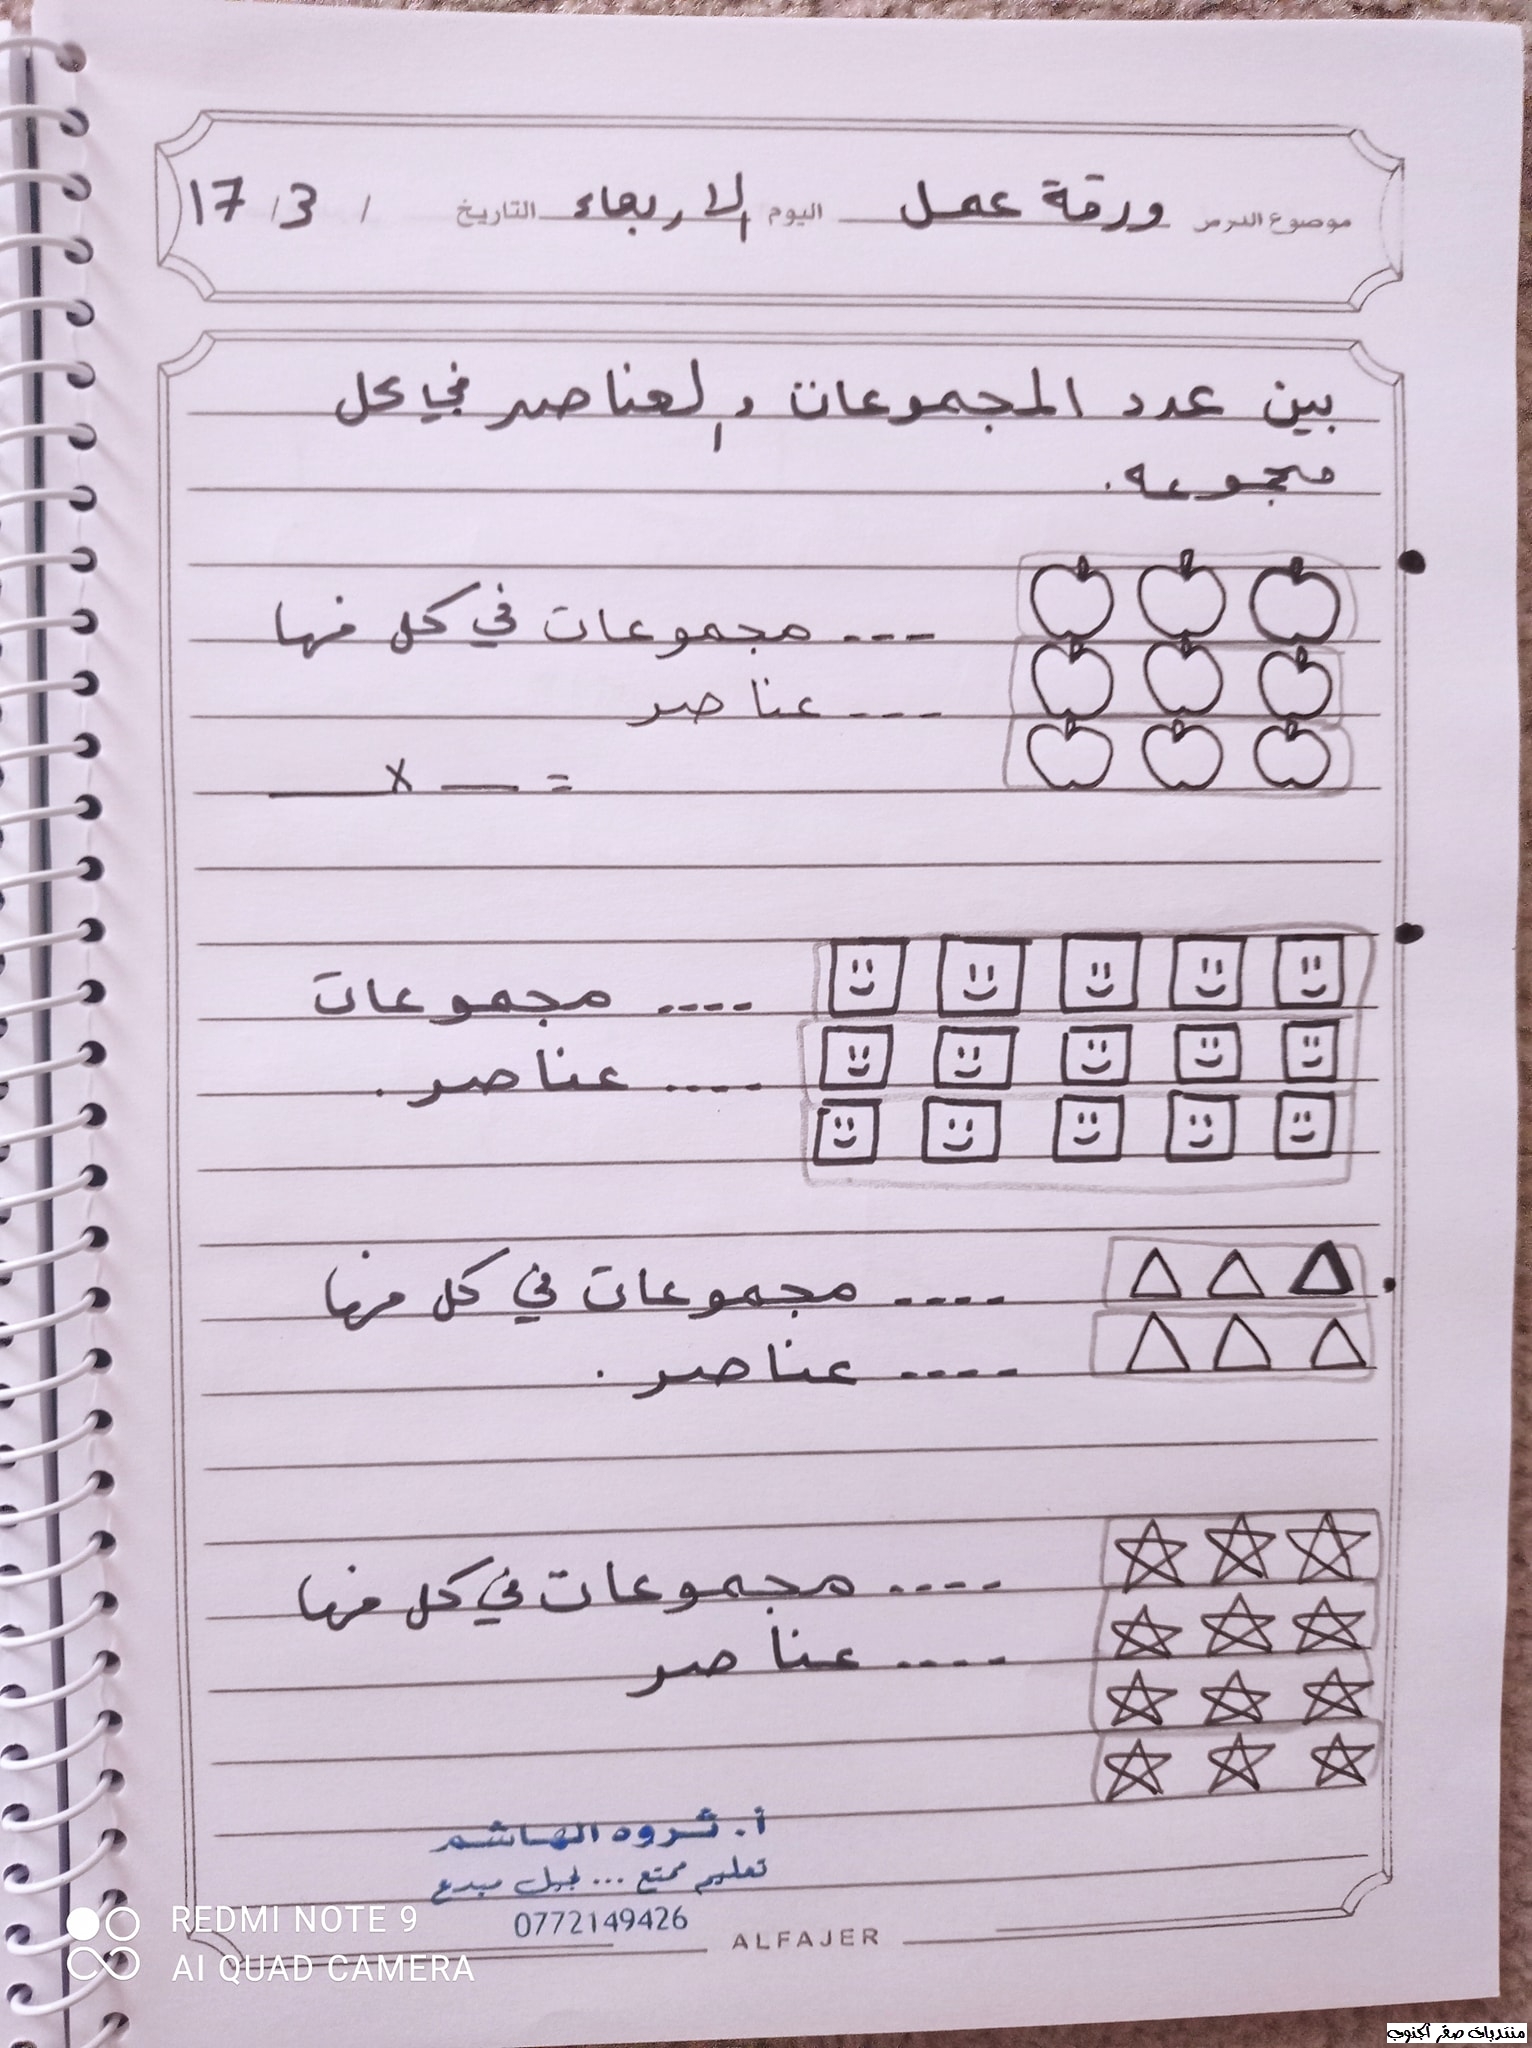 موضوع الدرس ورقة عمل اليوم الاربعاء التاريخ / 3 / 17
بين عدد المجموعات والعناصر في كل
مجموعه.
--- مجموعات في كل منها
--- عناصر
___ x ___ =
---- مجموعات
---- عناصر.
---- مجموعات في كل منها
---- عناصر.
---- مجموعات في كل منها
---- عناصر
أ. ثروه الهاشم
تعليم ممتع ... لجيل مبدع
0772149426
ALFAJER
REDMI NOTE 9
AI QUAD CAMERA
منتديات صقر الجنوب